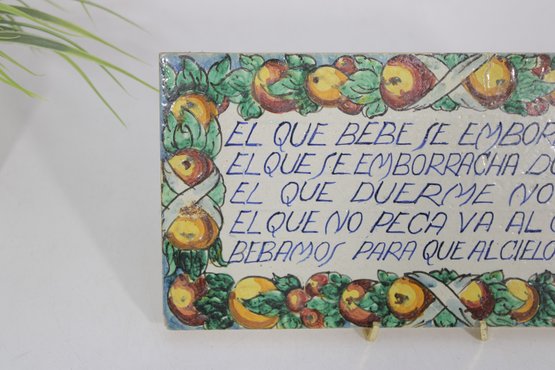 EL QUE BEBE SE EMBOR
EL QUE SE EMBORRACHA DU
EL QUE DUERME NO
EL QUE NO PECA VA AL
BEBAMOS PARA QUE AL CIELO